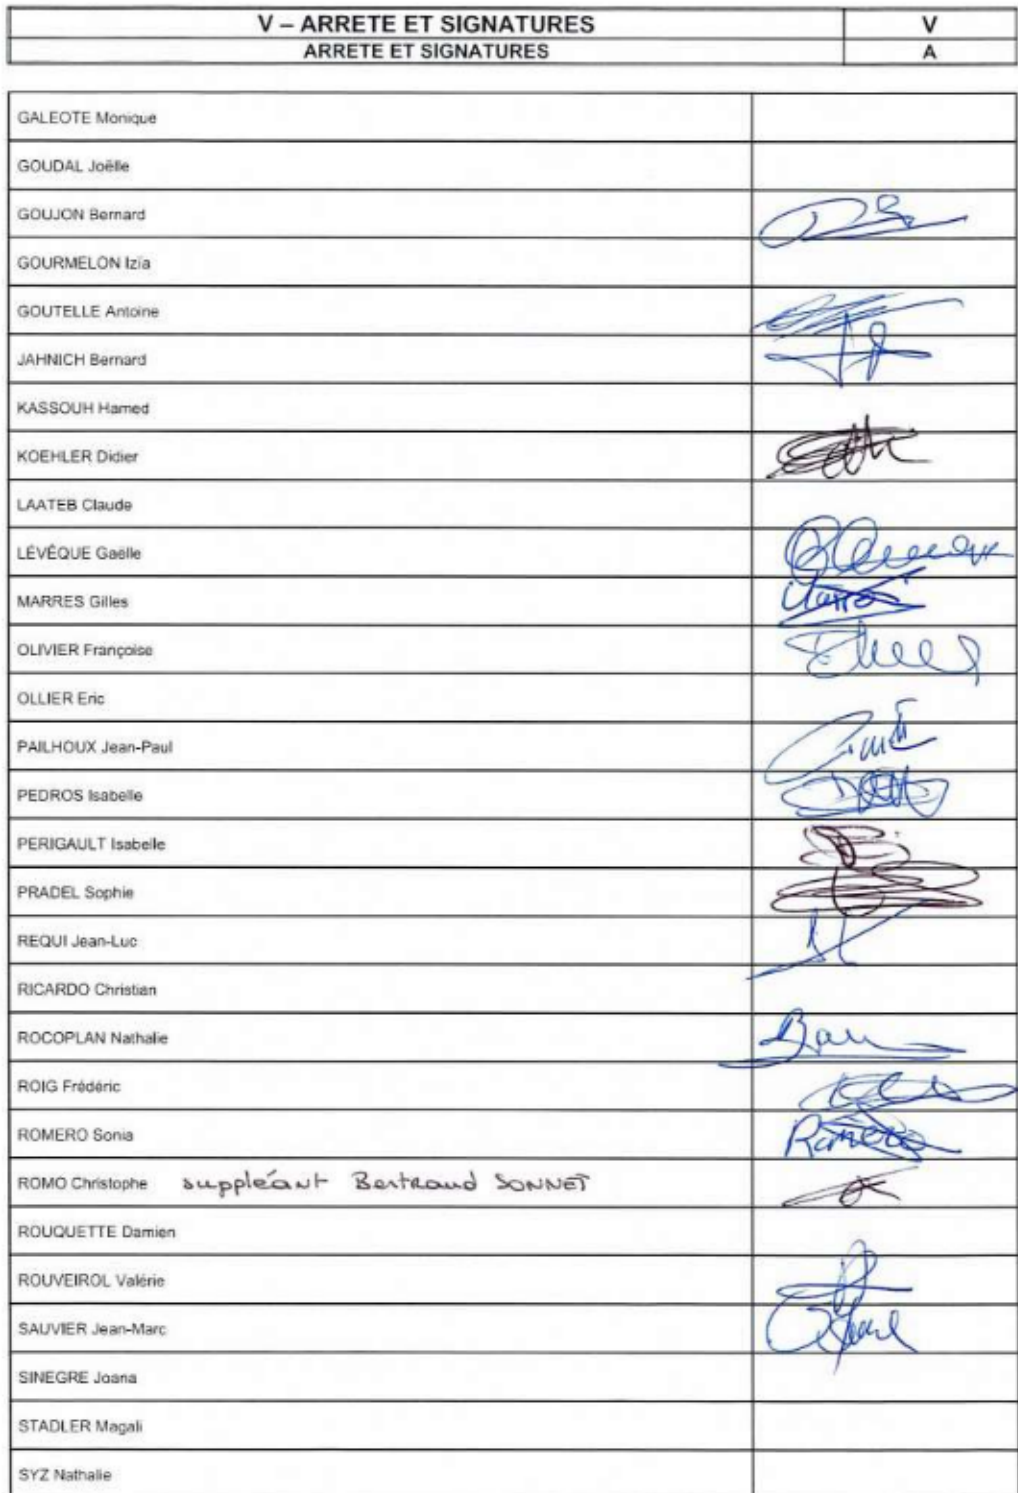 V – ARRETE ET SIGNATURES V
ARRETE ET SIGNATURES A
GALEOTE Monique
GOUDAL Joëlle
GOUJON Bernard
GOURMELON Izïa
GOUTELLE Antoine
JAHNICH Bernard
KASSOUH Hamed
KOEHLER Didier
LAATEB Claude
LÉVÊQUE Gaëlle
MARRES Gilles
OLIVIER Françoise
OLLIER Eric
PAILHOUX Jean-Paul
PEDROS Isabelle
PERIGAULT Isabelle
PRADEL Sophie
REQUI Jean-Luc
RICARDO Christian
ROCOPLAN Nathalie
ROIG Frédéric
ROMERO Sonia Romero
ROMO Christophe suppléant Bertrand SONNET
ROUQUETTE Damien
ROUVEIROL Valérie
SAUVIER Jean-Marc
SINEGRE Joana
STADLER Magali
SYZ Nathalie